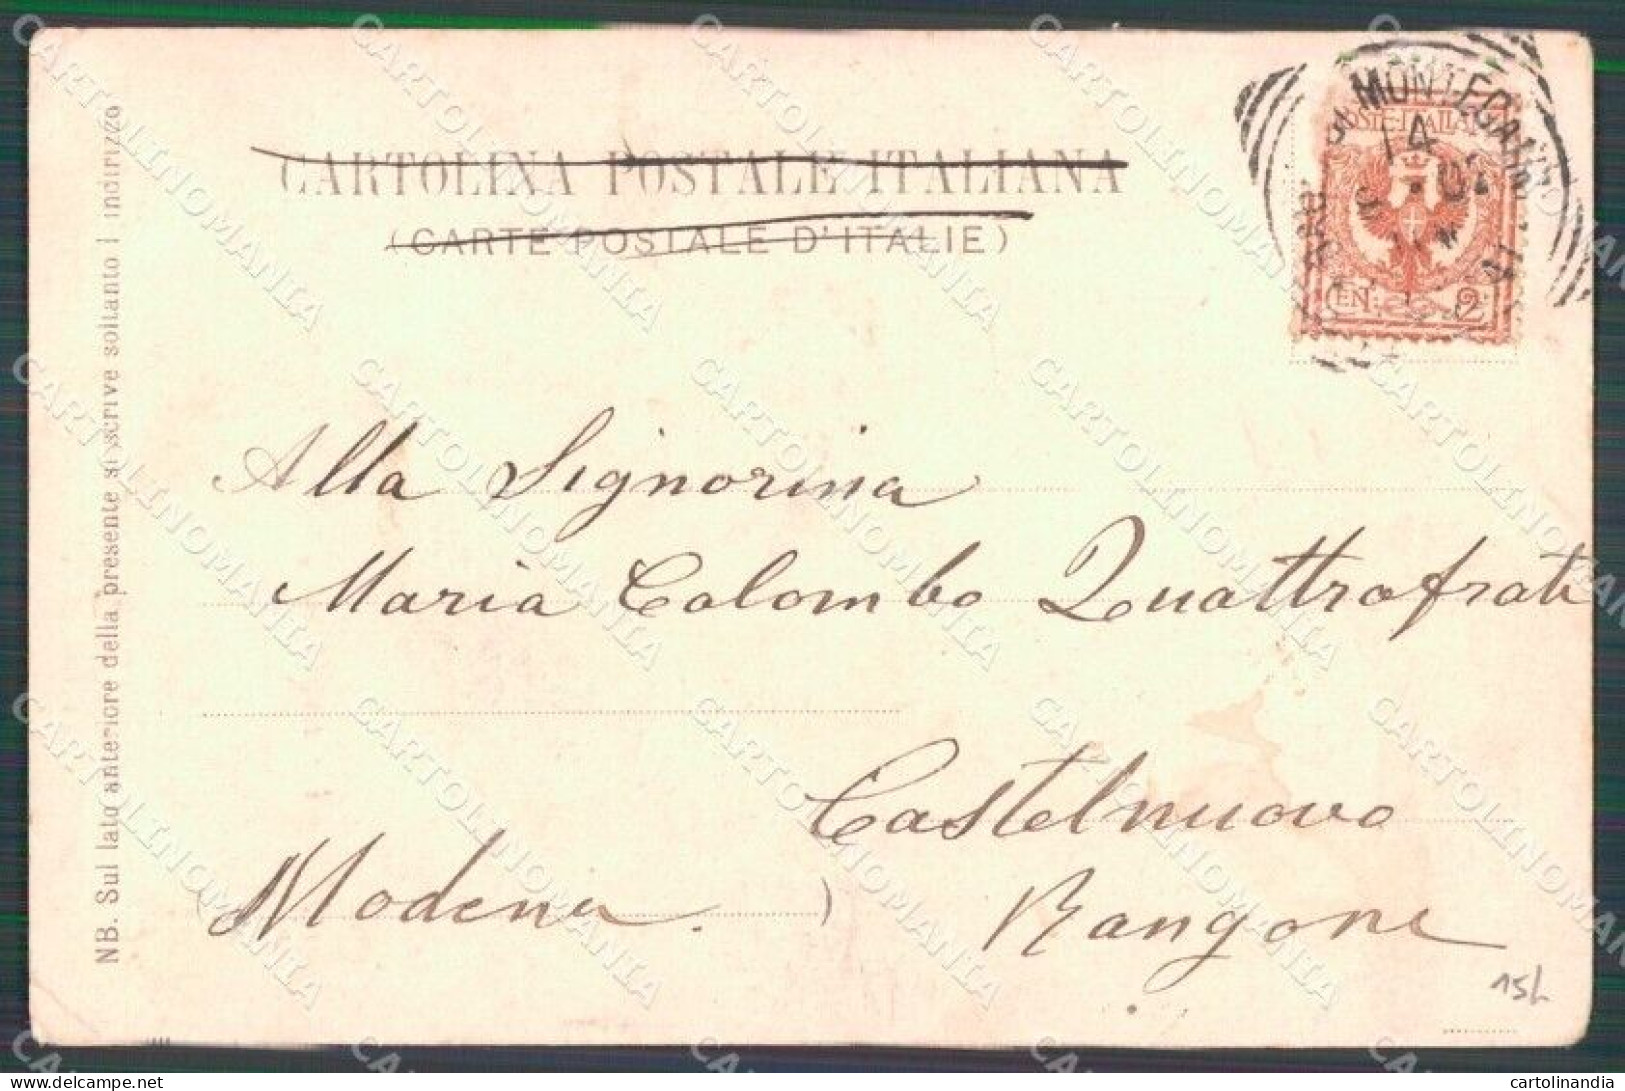 CARTOLINA POSTALE ITALIANA
(CARTE POSTALE D'ITALIE)
POSTE ITALIANE
CEN. 2
Alla Signorina
Maria Colombo Quattrofrati
Castelnuovo
Rangone
Modena.)
NB. Sul lato anteriore della presente si scrive soltanto l'indirizzo
15L
CARTOLINOMANIA
delcampe.net
cartolinandia